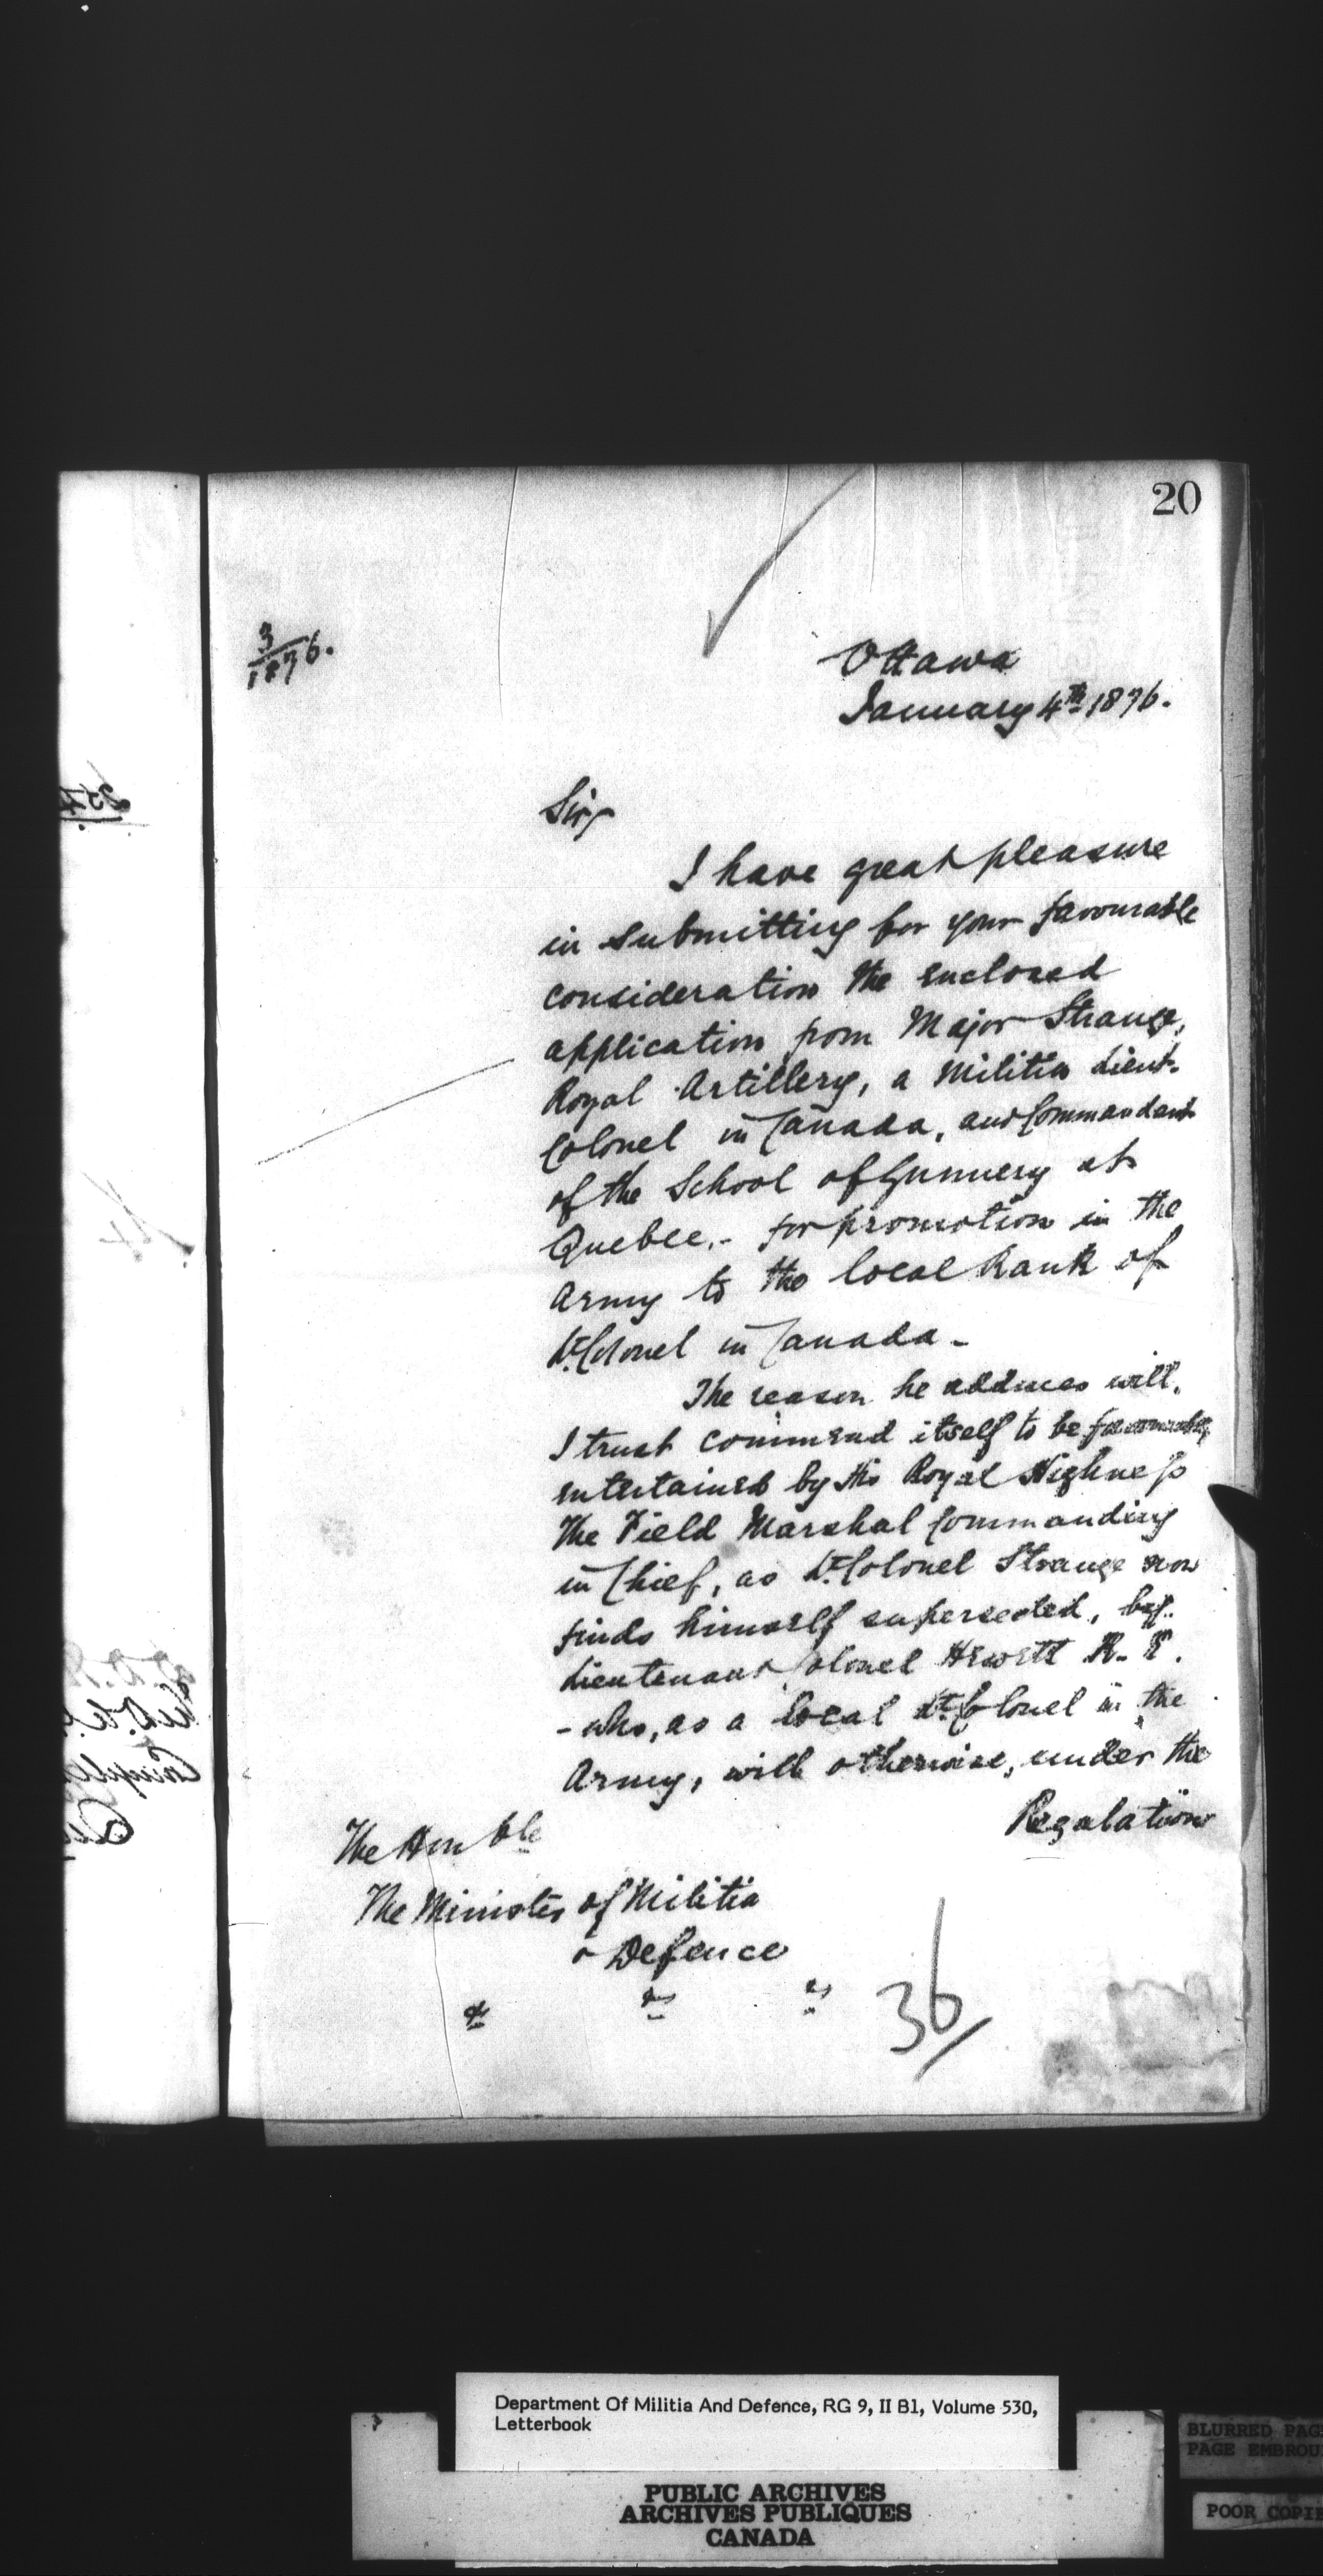 20
3/1876.
Ottawa
January 4th 1876.
Sir
I have great pleasure
in submitting for your favourable
consideration the enclosed
application from Major Strange,
Royal Artillery, a Militia Lieut.
Colonel in Canada, and Commandant
of the School of Gunnery at
Quebec,- for promotion in the
Army to the local Rank of
Lt. Colonel in Canada-
The reason he adduces will,
I trust commend itself to be favourably
entertained by His Royal Highness
The Field Marshal Commanding
in Chief, as Lt. Colonel Strange now
finds himself superseded, by
Lieutenant Colonel Hewett R. E.
- who, as a local Lt. Colonel in the
Army, will otherwise, under the
Regulations
The Honble
The Minister of Militia
& Defence
& & &
36
Department Of Militia And Defence, RG 9, II B1, Volume 530,
Letterbook
PUBLIC ARCHIVES
ARCHIVES PUBLIQUES
CANADA
BLURRED PAG
PAGE EMBROU
POOR COPIE